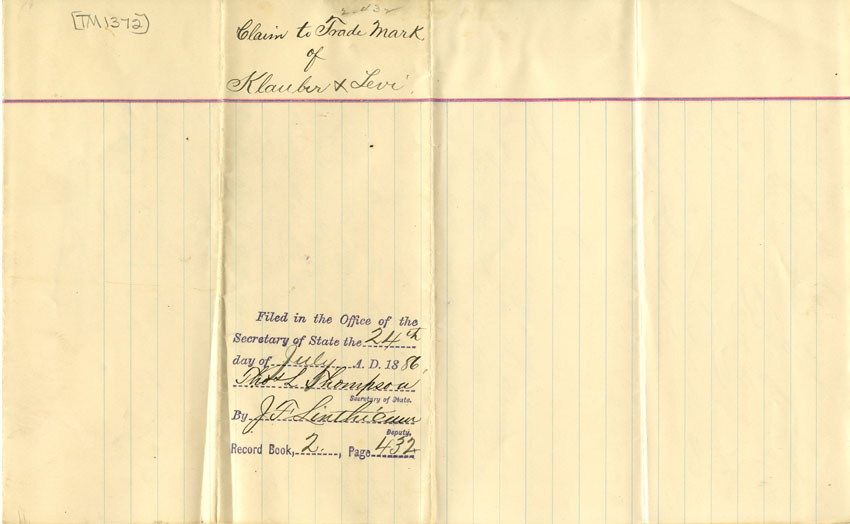 [TM1372]
2-432
Claim to Trade Mark
of
Klauber & Levi.
Filed in the Office of the
Secretary of State the 24th
day of July A. D. 1886,
Thos L. Thompson
Secretary of State.
By J. F. Linthicum
Deputy.
Record Book, 2, Page 432